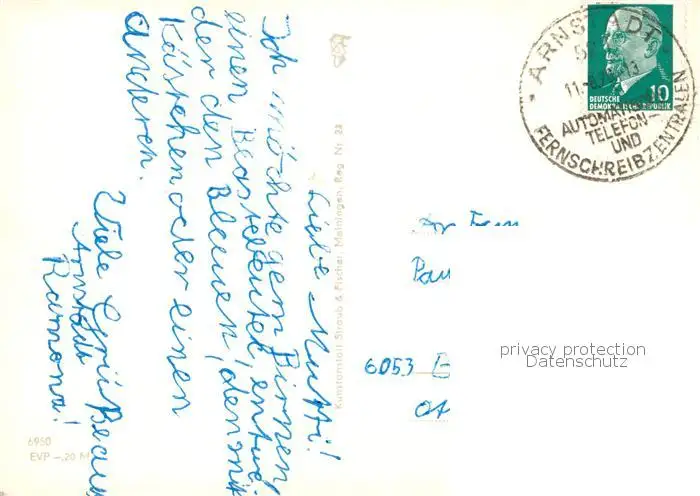 Liebe Mutti!
Ich möchte gern Birnen,
einen Bastelbeutel, entwe-
der den Blauen, den mit
Kästchen oder einen
anderen.
Viele Grüße aus
Arnstadt
Ramona!
Kunstanstalt Straub & Fischer, Meiningen, Reg. Nr. 23
6950
EVP –,20 M
ARNSTADT
11.-8.
AUTOMATISCHE
TELEFON-
UND
FERNSCHREIBZENTRALEN
DEUTSCHE
DEMOKRATISCHE REPUBLIK
10
6053
privacy protection
Datenschutz